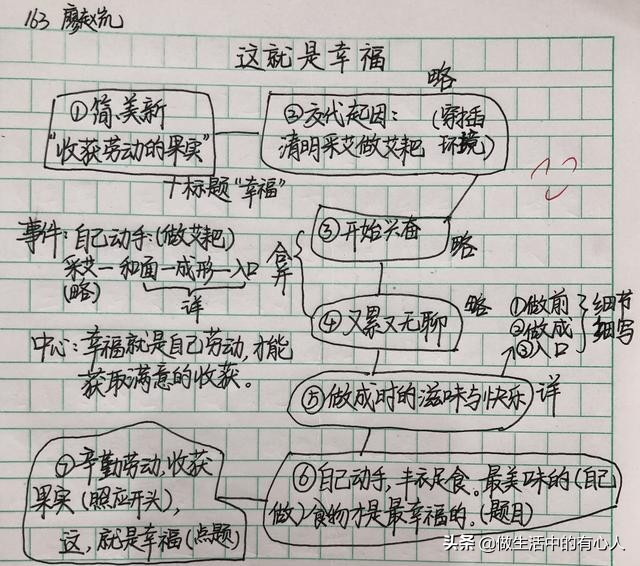 163 廖赵凯
这就是幸福
①简、美新
"收获劳动的果实"
十标题"幸福"
略
②交代起因：(穿插
清明采艾做艾粑 环境)
事件：自己动手：(做艾粑)
采艾一和面一成形一入口
(略)
详
合并
③开始兴奋
略
④又累又无聊
略
①做前
②做成
③入口
细节
细写
中心：幸福就是自己劳动，才能
获取满意的收获。
⑤做成时的滋味与快乐
详
⑥自己动手，丰衣足食。最美味的(自己
做)食物才是最幸福的。(题目)
⑦辛勤劳动，收获
果实(照应开头)，
这，就是幸福(点题)
头条 @做生活中的有心人